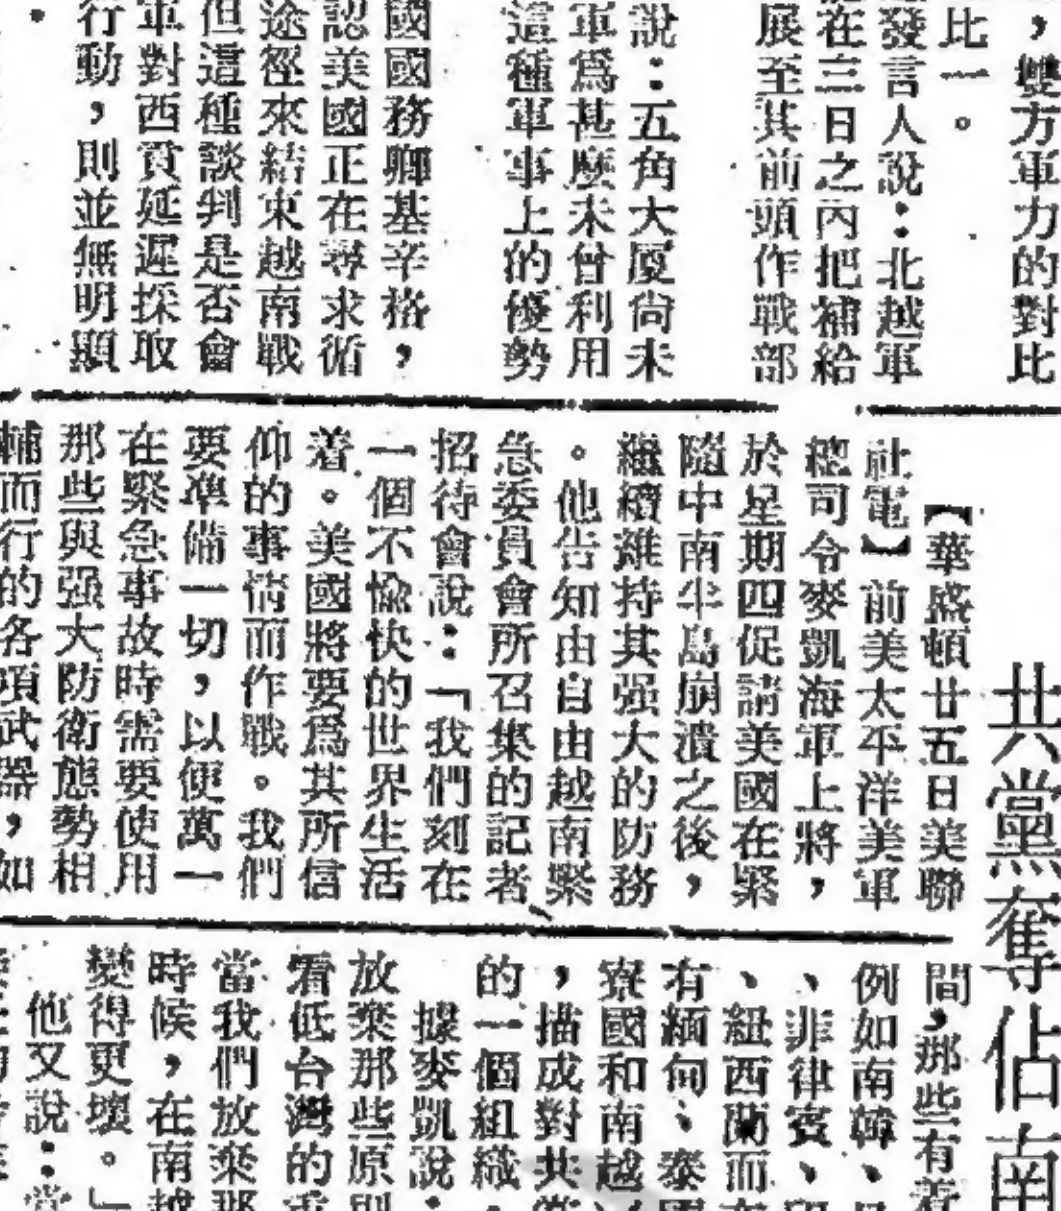 ，雙方軍力的對比
比一。
發言人說：北越軍
在三日之內把補給
展至其前頭作戰部
說：五角大廈尙未
軍爲甚麼未曾利用
這種軍事上的優勢
國國務卿基辛格，
認美國正在尋求循
途徑來結束越南戰
但這種談判是否會
軍對西貢延遲採取
行動，則並無明顯
。
共黨奪佔南
【華盛頓廿五日美聯
社電】前美太平洋美軍
總司令麥凱海軍上將，
於星期四促請美國在緊
隨中南半島崩潰之後，
繼續維持其强大的防務
。他告知由自由越南緊
急委員會所召集的記者
招待會說：「我們刻在
一個不愉快的世界生活
着。美國將要爲其所信
仰的事情而作戰。我們
要準備一切，以便萬一
在緊急事故時需要使用
那些與强大防衛態勢相
輔而行的各項武器，如
間，那些有着
例如南韓、
、菲律賓、
、紐西蘭而
有緬甸、泰國
寮國和南越
，描成對共黨
的一個組織
據麥凱說：
放棄那些原則
看低台灣的重
當我們放棄那
時候，在南越
變得更壞。」
他又說：當